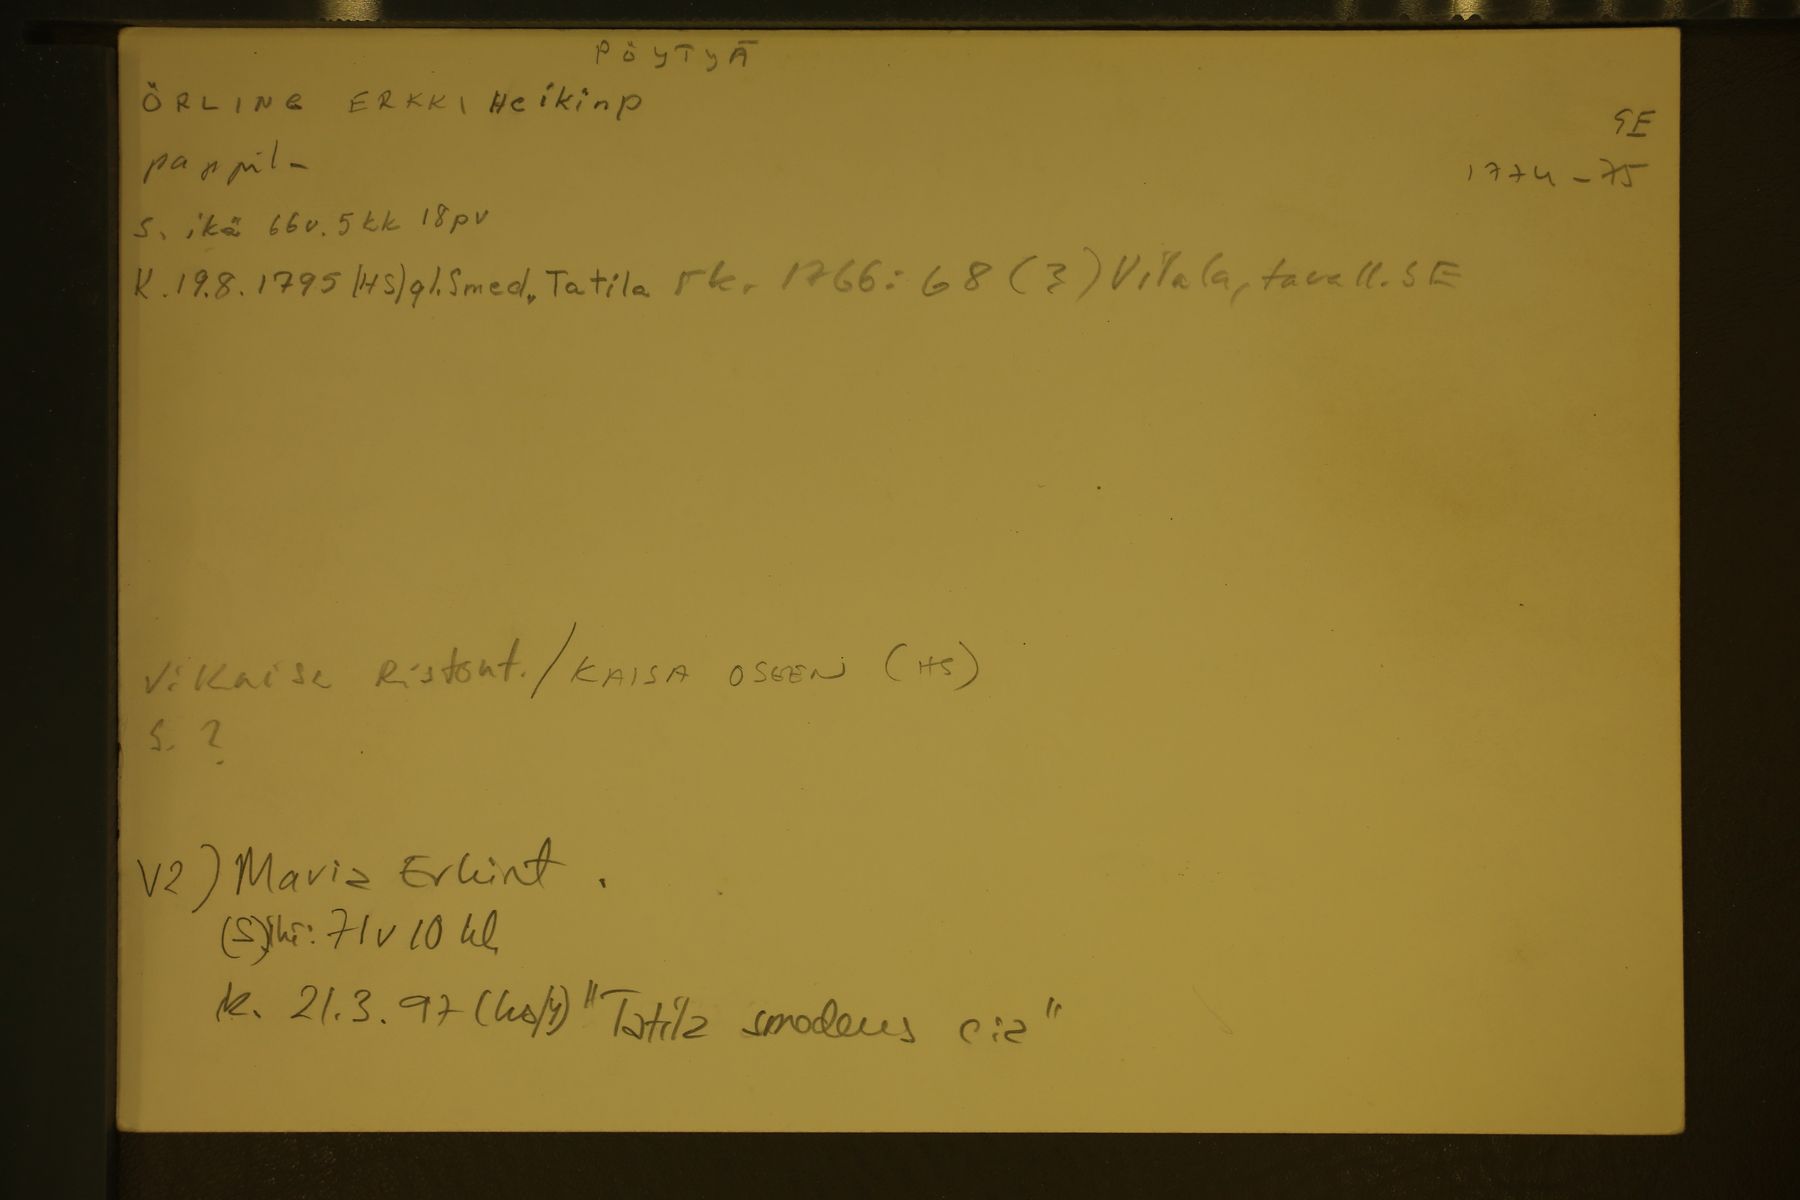 PÖYTYÄ
ÖRLING ERKKI Heikinp
SE
pappil-
1774-75
s. ikä 66v. 5kk 18pv
K. 19.8.1795 (HS) gl. Smed, Tatila rk. 1766: 68 (3) Vilala, tavall. SE
V: Kaisa Ristont. / KAISA (HS)
S. ?
V2) Maria Erkint.
(S) ikä: 71v 10 kk
k. 21.3.97 (hs/y) "Tatila smedens"